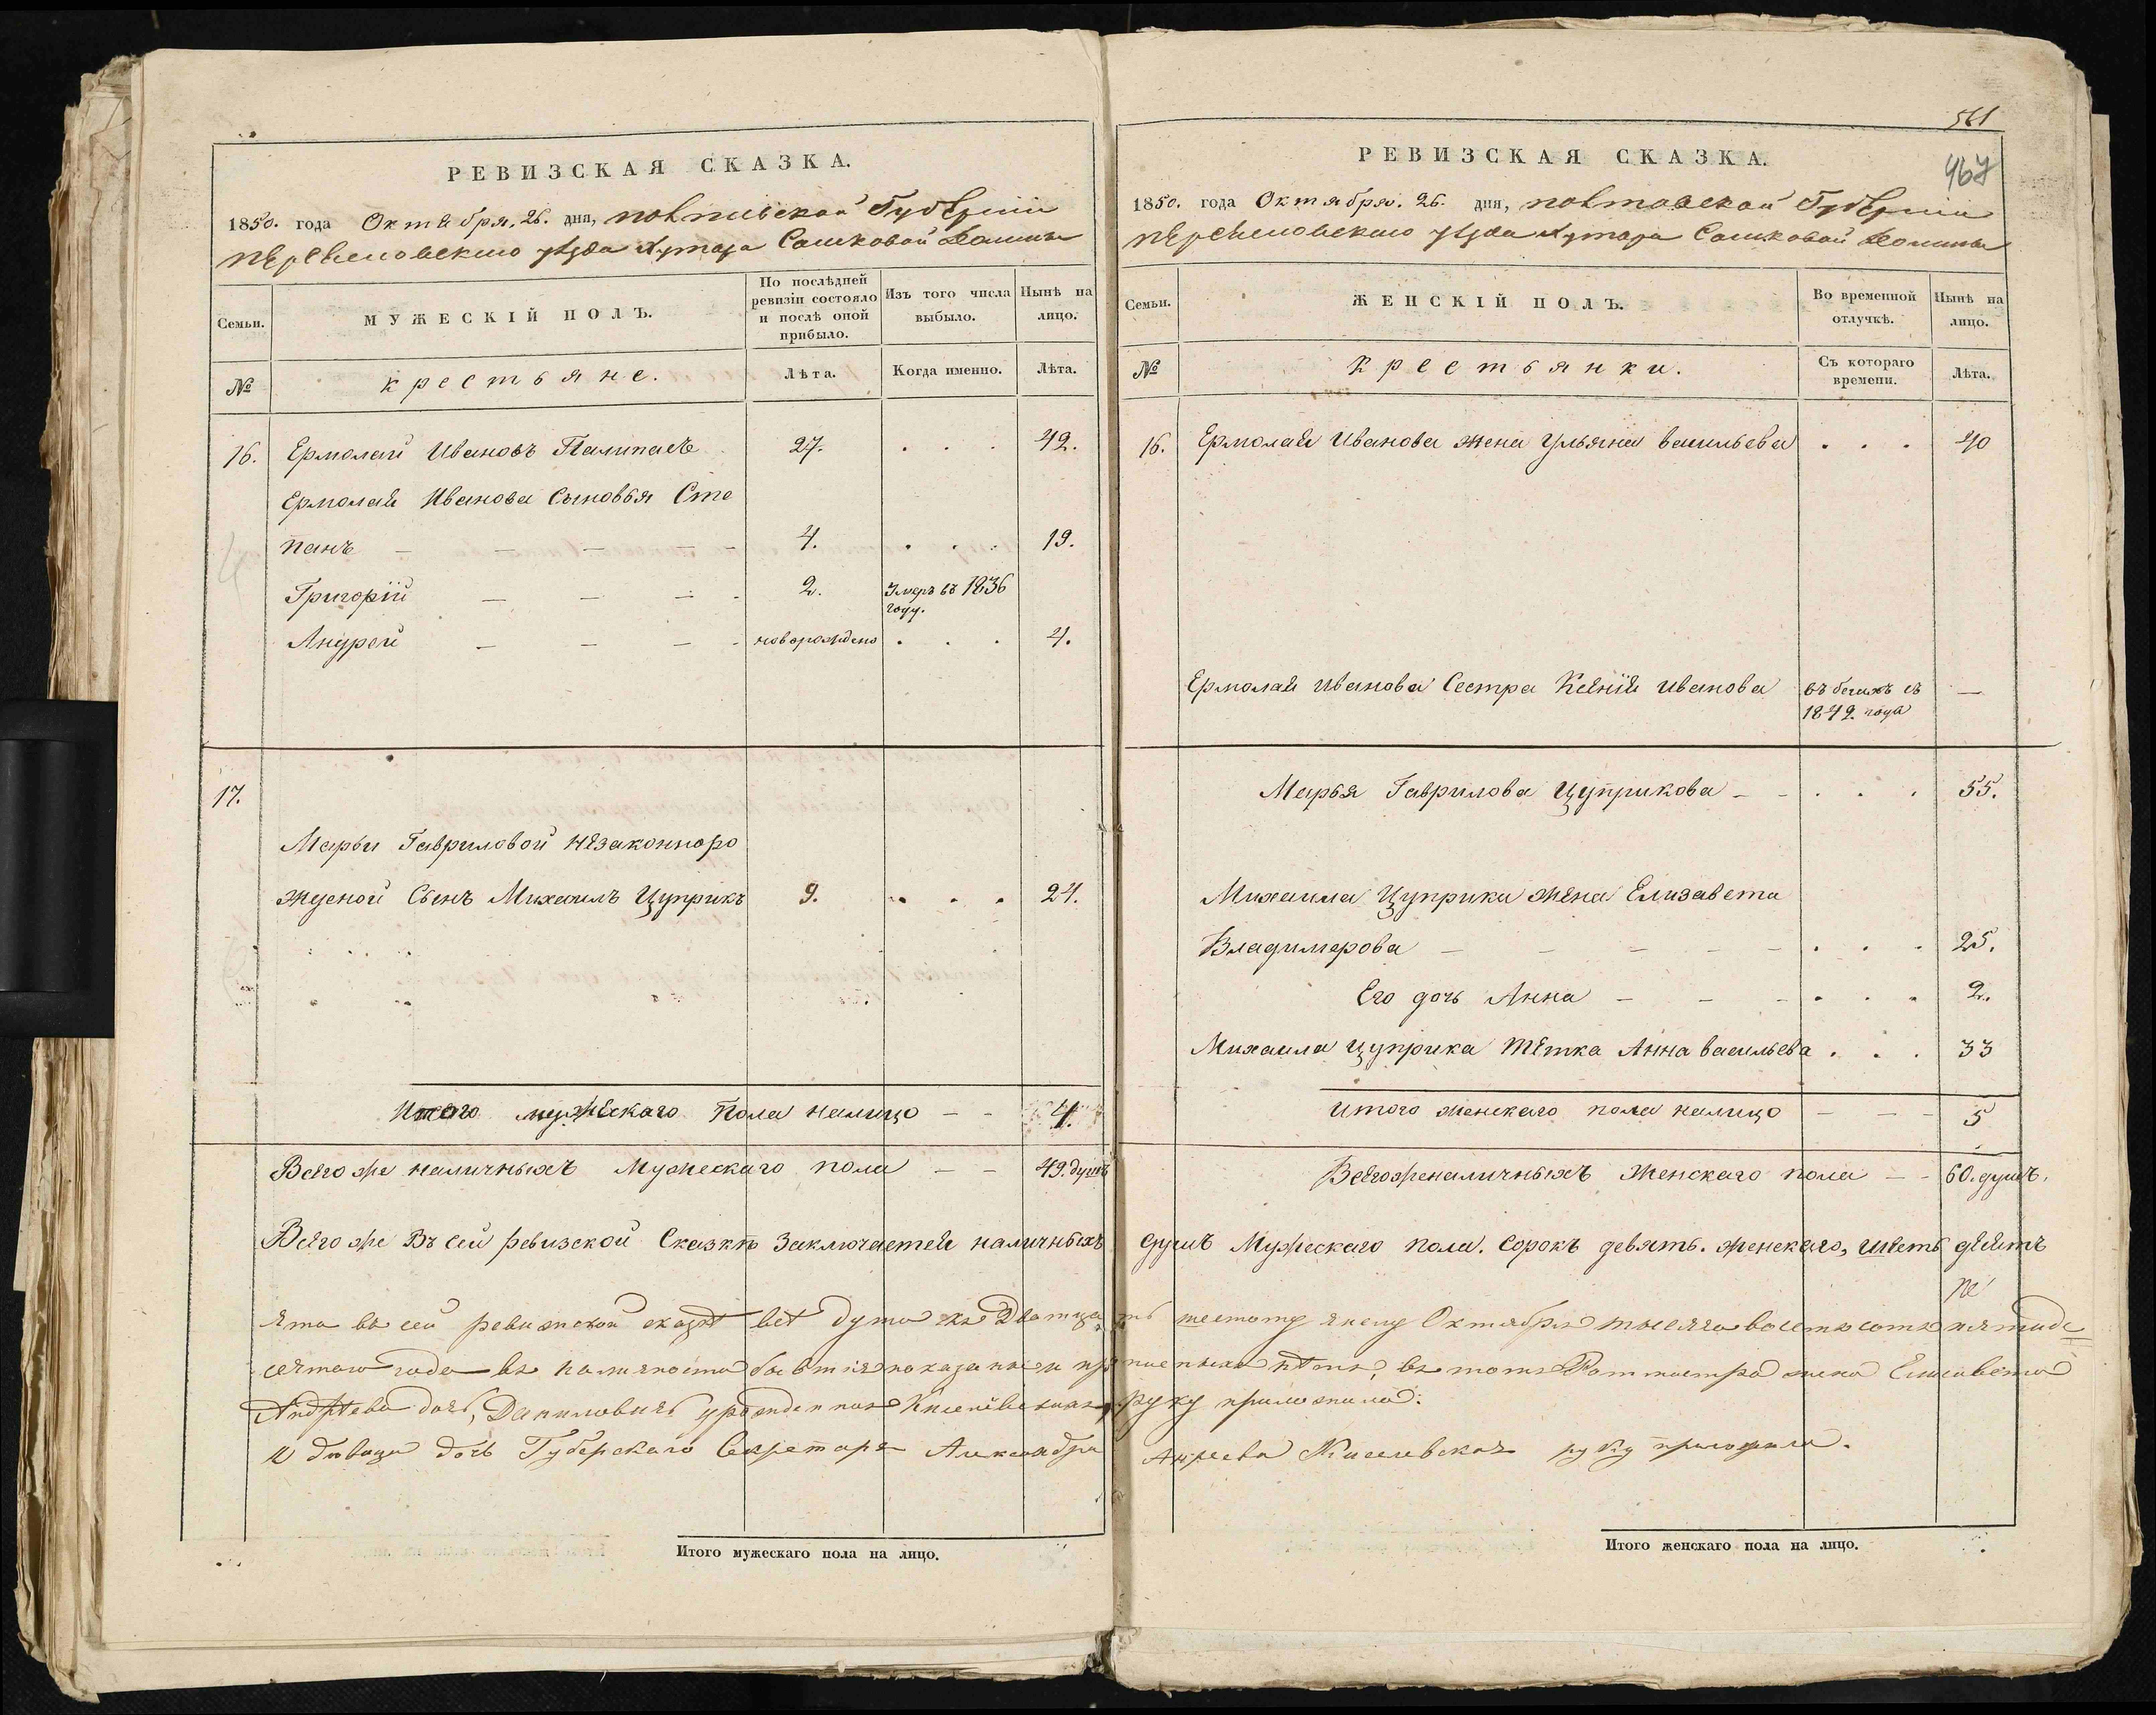 561
467
РЕВИЗСКАЯ СКАЗКА.
1850. года Октября. 26. дня, полтавской Губерніи
уѣзда Хутора Сашковой Долины
Семьи.
МУЖЕСКІЙ ПОЛЪ.
По послѣдней ревизіи состояло и послѣ оной прибыло.
Изъ того числа выбыло.
Нынѣ на лицо.
№
крестьяне.
Лѣта.
Когда именно.
Лѣта.
16. Ермолай Ивановъ 27. 42.
Ермолая Иванова Сыновья Сте
панъ 4. 19.
Григорій 2. Умеръ въ 1836
году.
Андрей новорожденъ 4.
17.
Марьи Гавриловой незаконноро
жденой Сынъ Михаилъ Цуприкъ 9. 24.
Итого мужескаго пола налицо 4.
Всего же наличныхъ Мужескаго пола 49. душъ
РЕВИЗСКАЯ СКАЗКА.
1850. года Октября. 26. дня, полтавской Губерніи
уѣзда Хутора Сашковой Долины
Семьи.
ЖЕНСКІЙ ПОЛЪ.
Во временной отлучкѣ.
Нынѣ на лицо.
№
крестьянки.
Съ котораго времени.
Лѣта.
16. Ермолая Иванова жена Ульяна васильева 40
Ермолая Иванова Сестра Ксенія иванова въ бегахъ съ —
1849. года
Марья Гаврилова Цуприкова 55.
Михаила Цуприка жена Елизавета
Владимерова 25.
Его дочь Анна 2.
Михаила цуприка тетка Анна васильева 33
Итого женскаго пола налицо 5
Всегоженаличныхъ Женскаго пола 60. душъ.
Всего же Въ сей ревизской Сказкѣ Заключается наличныхъ душъ Мужескаго пола. Сорокъ девять. женскаго, шесть десятъ
Что въ сей ревизской сказкѣ всѣ души къ Двадцать шестому числу Октября тысяча восемь сотъ пятиде
сятаго года въ наличности показаны и нѣтъ, въ томъ Ротмистра жена Елисавета
Андреева дочь, урожденная Киселевская, руку приложила:
дочь Губерскаго Секретаря Александра Андреева Киселевская руку приложила.
Итого мужескаго пола на лицо.
Итого женскаго пола на лицо.